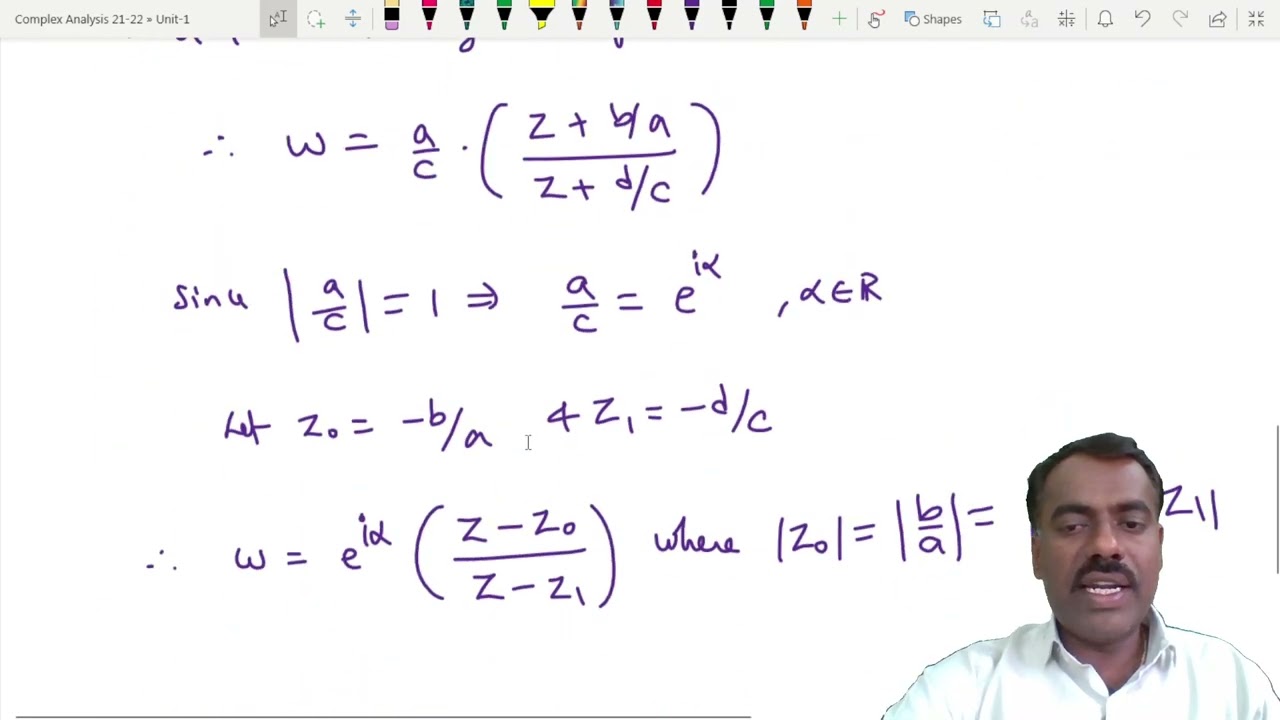 Complex Analysis 21-22 » Unit-1
Shapes
∴ w = a/c · ( (z + b/a) / (z + d/c) )
Since |a/c| = 1 ⇒ a/c = e^{iα} , α ∈ ℝ
Let z₀ = -b/a & z₁ = -d/c
∴ w = e^{iα} ( (z - z₀) / (z - z₁) ) where |z₀| = |b/a| = z₁|